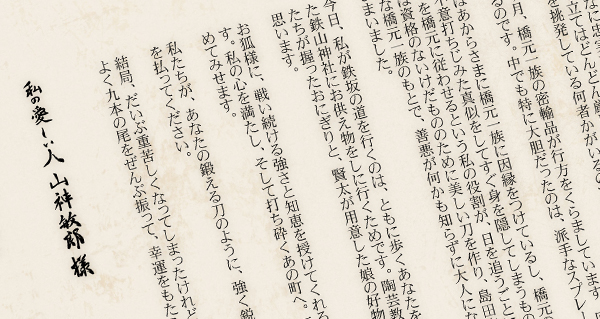 に忠実
立てはどんどん厳
を挑発している何者かがいるの
月、橋元一族の密輸品が行方をくらましています。
るのです。中でも特に大胆だったのは、派手なスプレー
はあからさまに橋元一族に因縁をつけているし、橋元の
意打ちじみた真似をしてすぐ身を隠してしまうもの
を橋元に従わせるという私の役割が、日を追うごと
は資格のないけだもののために美しい刀を作り、島田
な橋元一族のもとで、善悪が何かも知らずに大人にな
まいました。
今日、私が鉄坂の道を行くのは、ともに歩くあなたを
た鉄山神社にお供え物をしに行くためです。陶芸教
たちが握ったおにぎりと、賢太が用意した娘の好物
思います。
お狐様に、戦い続ける強さと知恵を授けてくれる
す。私の心を満たし、そして打ち砕くあの町へ。
めてみせます。
私たちが、あなたの鍛える刀のように、強く鋭
を払ってください。
結局、だいぶ重苦しくなってしまったけれど
よく九本の尾をぜんぶ振って、幸運をもた
私の愛しい人 山神敏郎 様